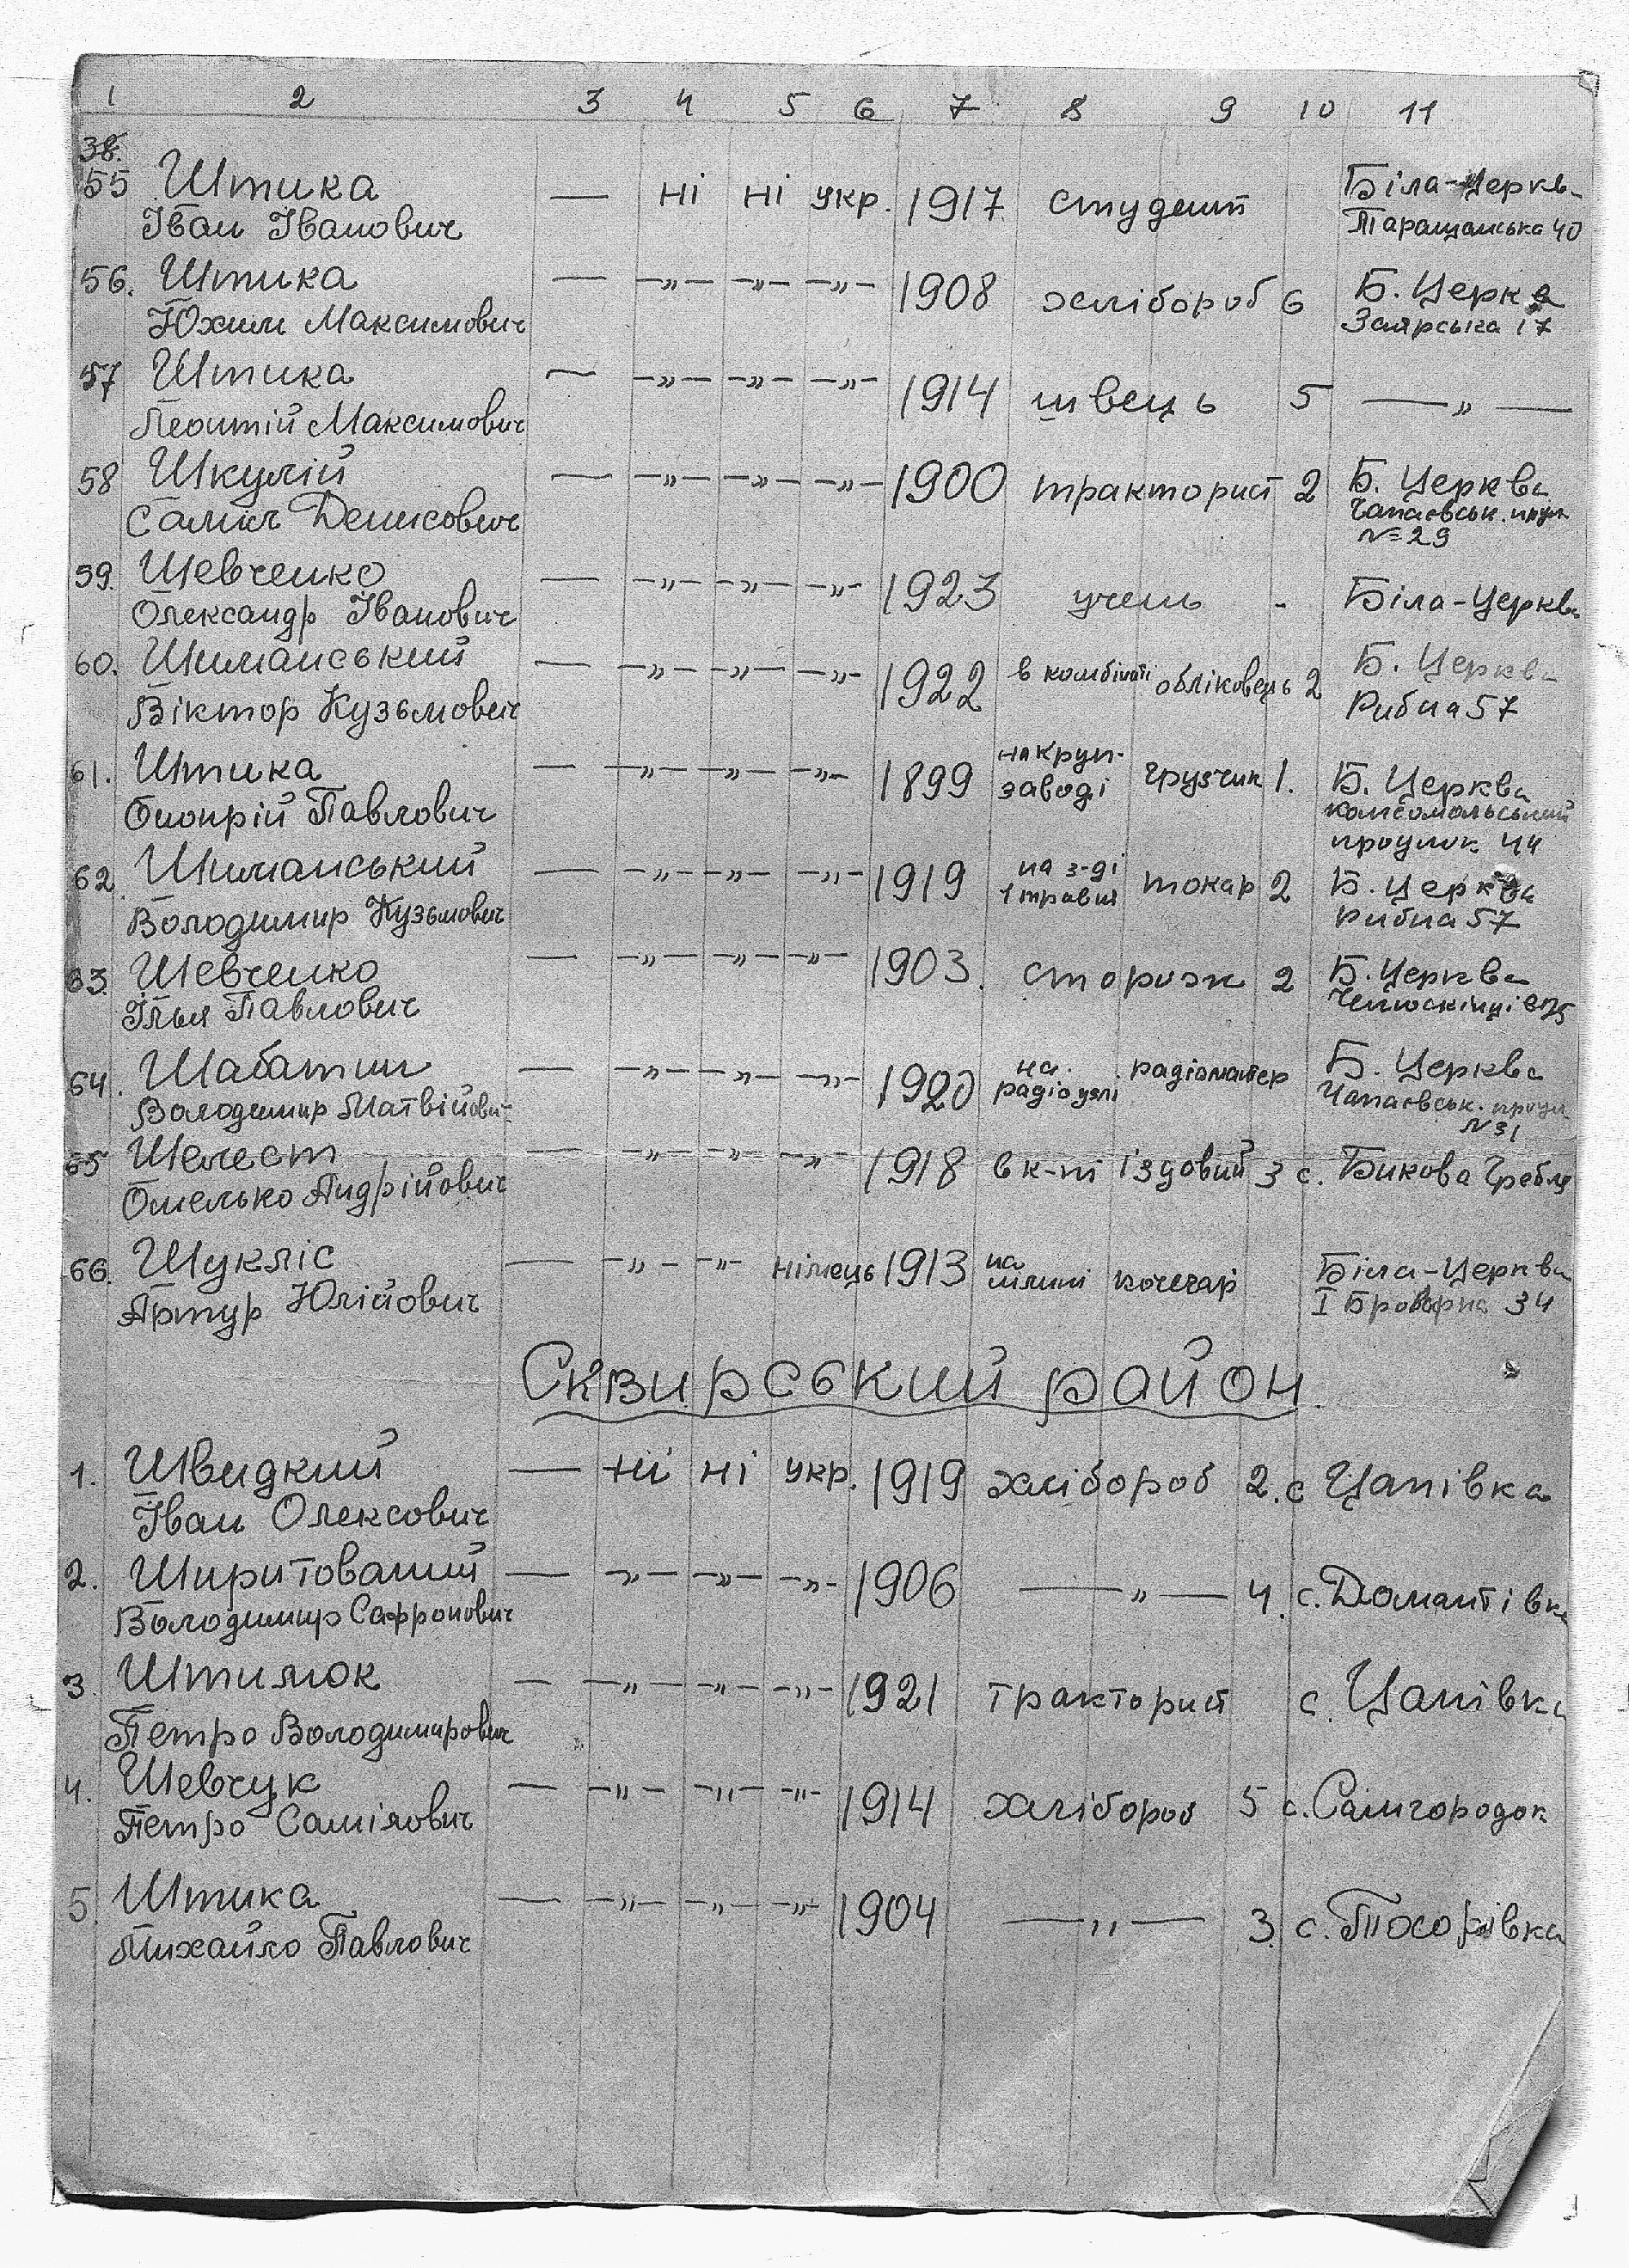 1 2 3 4 5 6 7 8 9 10 11
38.
55 Штика — ні ні укр. 1917 студент Біла-Церкв
Іван Іванович Таращанська 40
56. Штика — —„— —„— —„— 1908 хлібороб 6 Б. Церкв
Юхим Максимович Заярська 17
57 Штика — —„— —„— —„— 1914 швець 5 —„—
Леонтій Максимович
58 Шкулій — —„— —„— —„— 1900 тракторист 2 Б. Церква
Денисович Чапаєвськ.
№ 29
59. Шевченко — —„— —„— —„— 1923 учень - Біла-Церква
Олександр Іванович
60. Шиманський — —„— —„— —„— 1922 в комбінаті обліковець 2 Б. Церква
Віктор Кузьмович Рибна 57
61. Штика — —„— —„— —„— 1899 на круп-заводі грузчик 1. Б. Церква
Онопрій Павлович комсомольський
проулок 44
62. Шиманський — —„— —„— —„— 1919 на з-ді 1 травня токар 2 Б. Церква
Володимир Кузьмович Рибна 57
63. Шевченко — —„— —„— —„— 1903. сторож 2 Б. Церква
Ілья Павлович
64. Шабатин — —„— —„— —„— 1920 на радіоузлі радіоматер Б. Церква
Володимир Матвійович Чапаєвськ. проул
№ 31
65 Шелест — —„— —„— —„— 1918 в к-пі їздовий 3 с. Бикова Гребля
Омелько Андрійович
66. Шукліс — —„— —„— німець 1913 на млині кочегар Біла-Церква
Артур Юлійович І Броварна 34
Сквирський район.
1. Швидкий — ні ні укр. 1919 хлібороб 2. с Цапівка
Іван Олексович
2. Ширитований — —„— —„— —„— 1906 —„— 4. с. Домантівка
Володимир Сафронович
3. Штилюк — —„— —„— —„— 1921 тракторист с. Цапівка
Петро Володимирович
4. Шевчук — —„— —„— —„— 1914 хлібороб 5 с. Самгородок
Петро Саміялович
5. Штика — —„— —„— —„— 1904 —„— 3. с. Тхорівка
Михайло Павлович